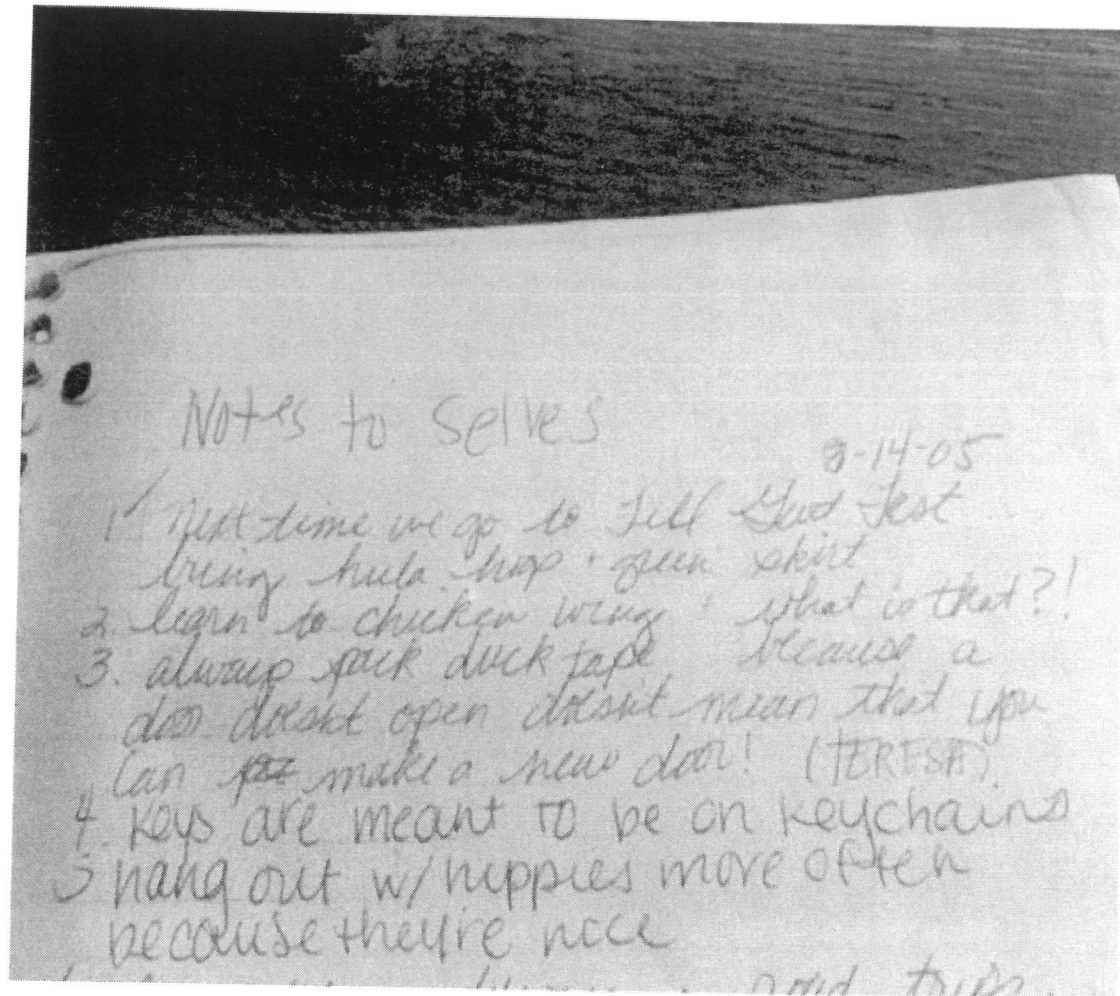 Notes to Selves
8-14-05
1. Next time we go to Fest
bring hula hoop + green skirt
2. learn to chicken wing what is that?!
3. always pack duck tape because a
door doesnt open doesnt mean that you
can make a new door! (TERESA)
4. keys are meant to be on keychains
5 hang out w/ hippies more often
because they're nice
good trips